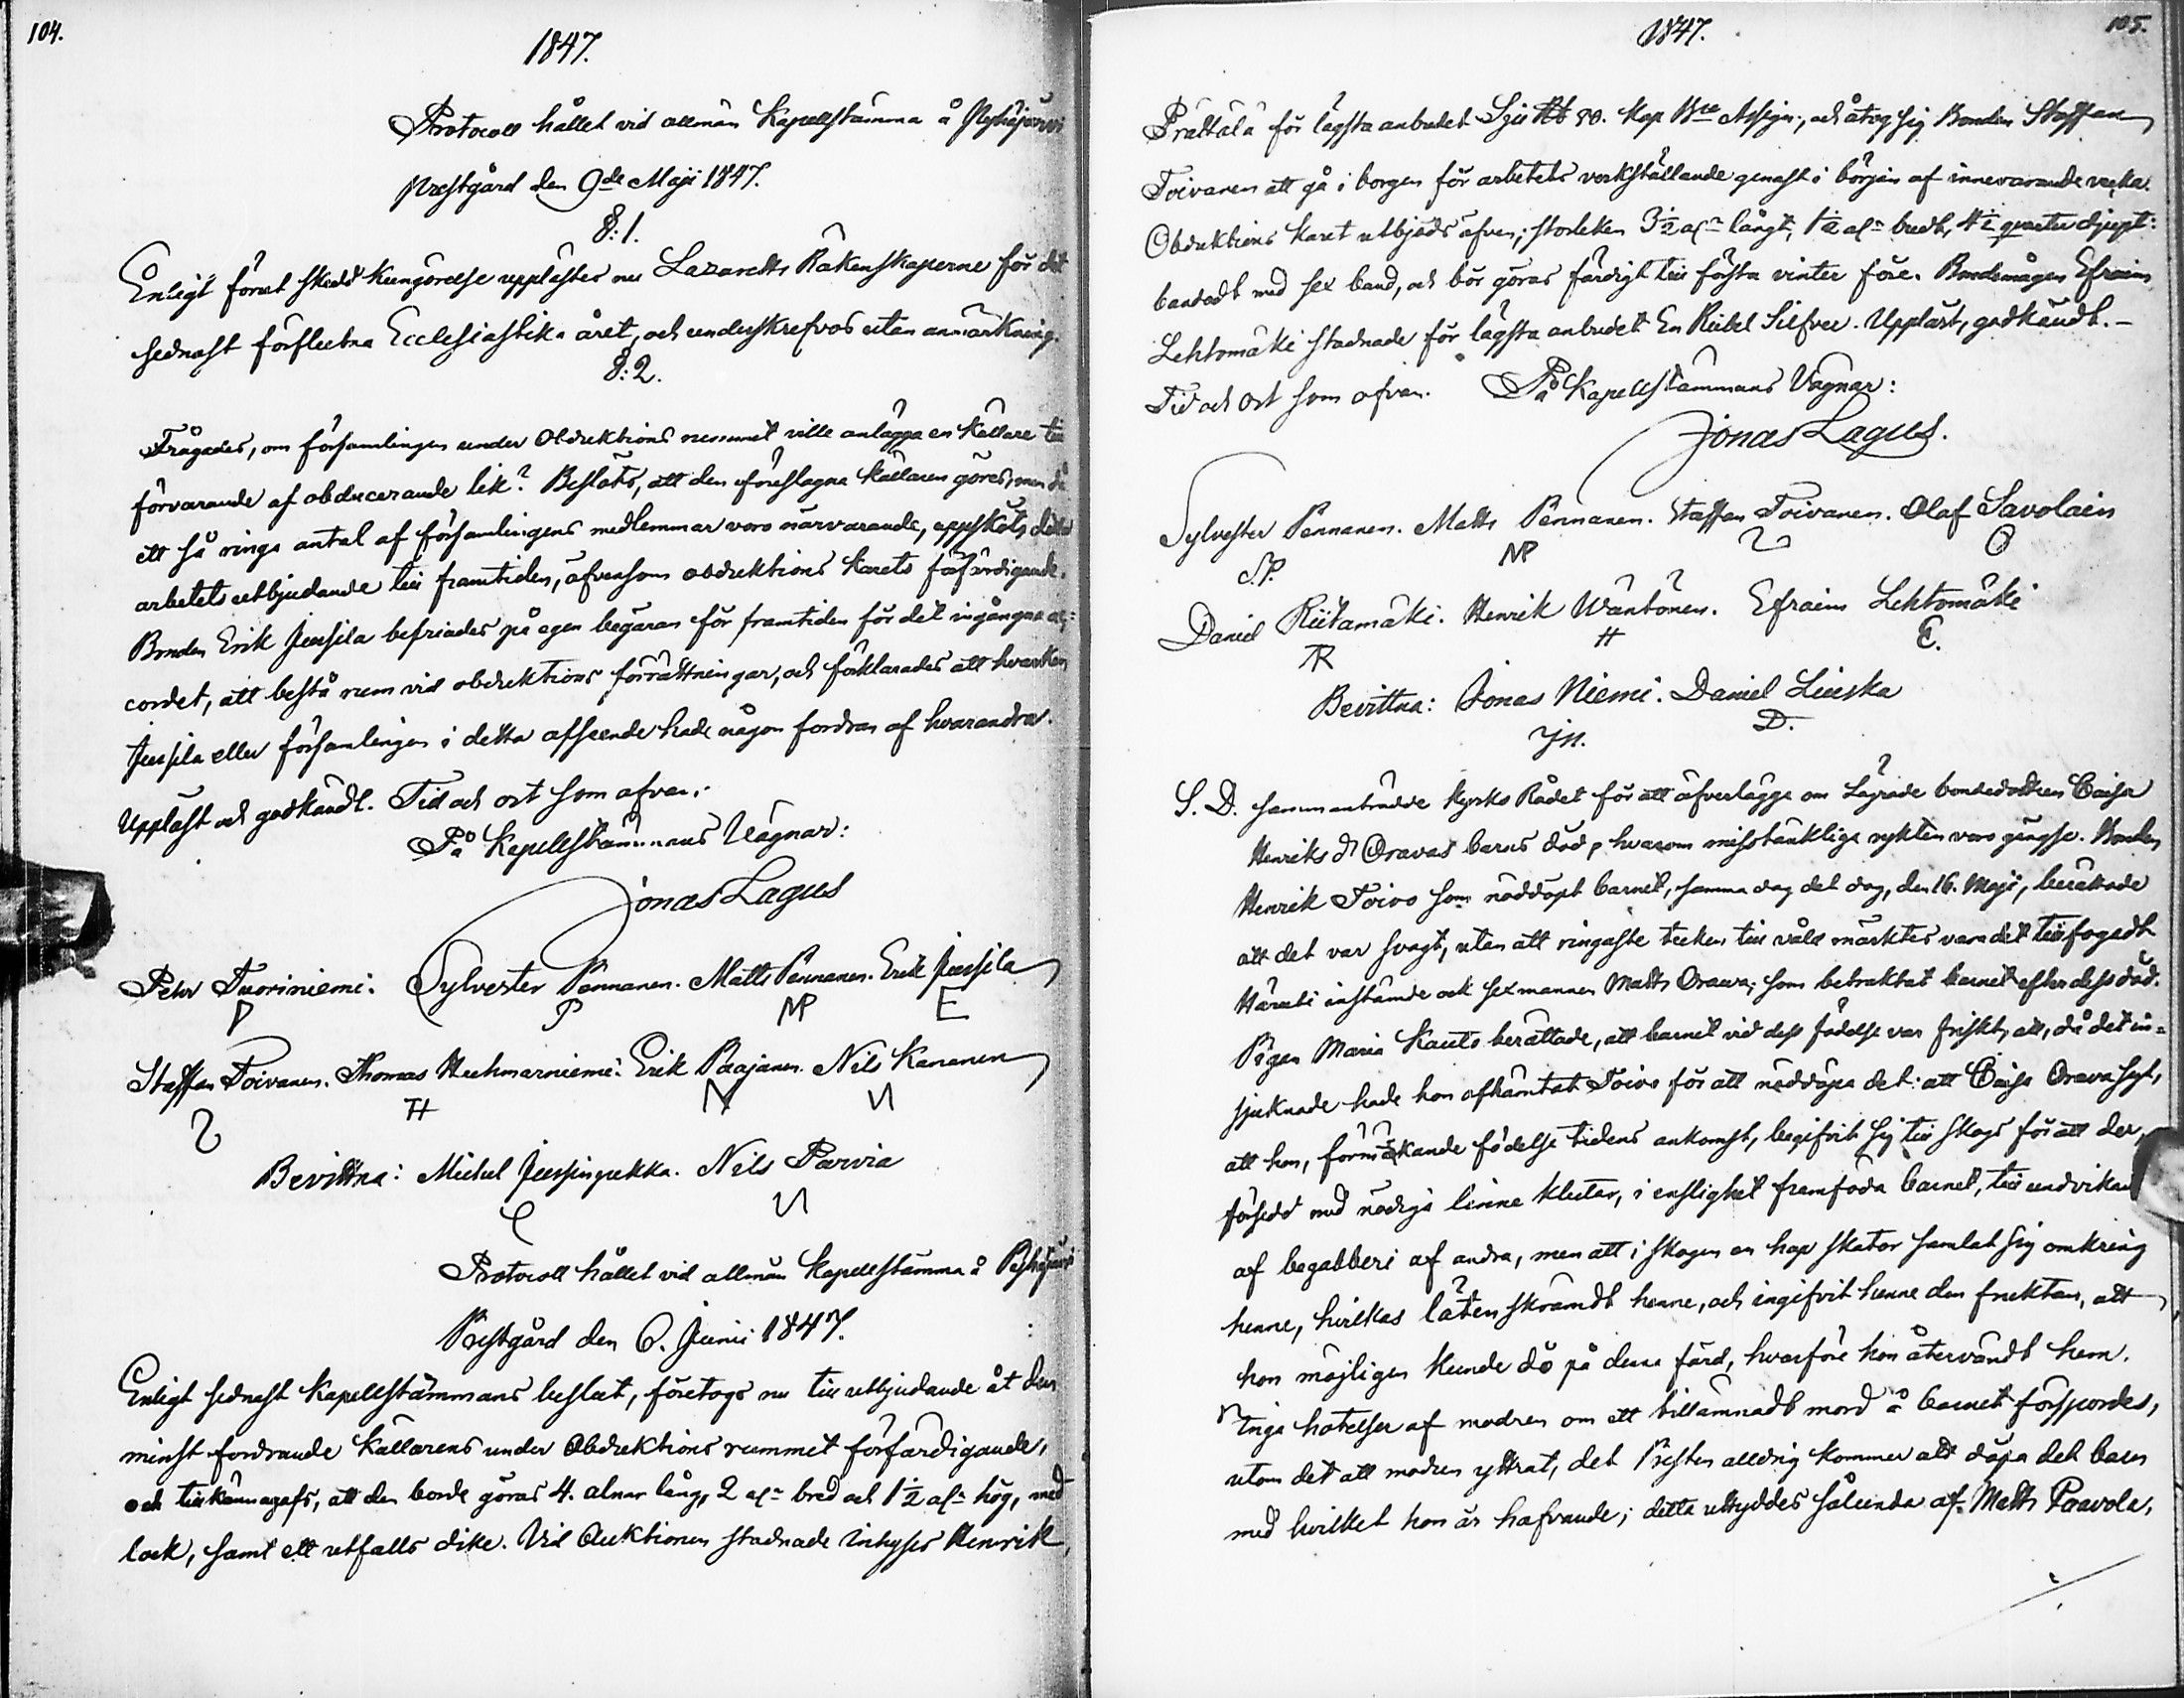 104.
1847.
Protocoll hållet vid allmän Kapellstämma å Pyhäjärvi
Prestgård den 9de Maji 1847.
§: 1.
Enligt förut skedd kungörelse upplästes nu Lazaretts Räkenskaperne för det
sednast förflutna Ecclesiastika året, och underskrefvos utan anmärkning.
§: 2.
Frågades, om församlingen under Obduktions rummet ville anlägga en källare till
förvarande af obducerande lik? Beslöts, att den föreslagna källaren göres, men då
ett så ringa antal af församlingens medlemmar voro närvarande, uppsköts detta
arbetets utbjudande till framtiden, äfvensom obduktions karets förfärdigande.
Bonden Erik Jussila befriades på egen begäran för framtiden för det ingångna ac:
cordet, att bestå rum vid obduktions förrättningar, och förklarades att hvarken
Jussila eller församlingen i detta afseende hade någon fordran af hvarandra.
Uppläst och godkändt. Tid och ort som ofvan.
På Kapellstämmans Vägnar:
Jonas Lagus
Petr Tuoriniemi. Sylvester Pennanen. Matts Pennanen. Erik Jussila
P P MP E
Staffan Toivanen. Thomas Huhmarniemi. Erik Paajanen. Nils Kananen
TH N
Bevittna: Michel Jussinpekka. Nils Parvia
Protocoll hållet vid allmän Kapellstämma å Pyhäjärvi
Prestgård den 6. Junii 1847.
Enligt sednast Kapellstämmans beslut, företogs nu till utbjudande åt den
minst fordrande källarens under Obduktions rummet förfärdigande,
och tillkännagafs, att den borde göras 4. alnar lång, 2 aln bred och 1½ aln hög, med
lock, samt ett utfalls dike. Vid Auktionen stadnade Inhyses Henrik
1847.
105.
Prättälä för lägsta anbudet Sju Rb 80. Kop Bco Assign., och åtog sig Bonden Staffan
Toivanen att gå i borgen för arbetets verkställande genast i början af innevarande vecka.
Obduktions karet utbjöds äfven; storleken 3½ aln långt, 1½ aln bredt, 4½ qvarter djupt:
bandadt med sex band, och bör göras färdigt till första vinter före. Bondemågen Efraim
Lehtomäki stadnade för lägsta anbudet En Rubel Silfver. Uppläst, godkändt. -
Tid och ort som ofvan. På Kapellstämmans Vägnar:
Jonas Lagus.
Sylvester Pennanen. Matts Pennanen. Staffan Toivanen. Olaf Savolain
S.P. MP O
Daniel Riitamäki. Henrik Wäntönen. Efraim Lehtomäki
R H E.
Bevittna: Jonas Niemi. Daniel Liuska
JN. D.
S. D. sammanträdde Kyrko Rådet för att öfverlägga om Lägrade bondedottren Caisa
Henriks dr Oravas barns död, hvarom misstänkliga rykten voro gängse. Bonden
Henrik Toivo som nöddöpt barnet, samma dag det dog, den 16. Maji, berättade
att det var svagt, utan att ringaste tecken till våld märktes vara det tillfogadt
Häruti instämde ock sexmannen Matts Orawa, som betraktat barnet efter dess död.
Pigan Maria Kauto berättade, att barnet vid dess födelse var friskt, att, då det in=
sjuknade hade hon afhämtat Toivo för att nöddöpa det: att Caisa Orava sagt,
att hon, förmärkande födelse tidens ankomst, begifvit sig till skogs för att der,
försedd med nödiga linne klutar, i enslighet framföda barnet, till undvikande
af begabberi af andra, men att i skogen en hop skator samlat sig omkring
henne, hvilkas läten skrämdt henne, och ingifvit henne den fruktan, att
hon möjligen kunde dö på denna färd, hvarföre hon återvändt hem.
Inga hotelser af modren om ett tillämnadt mord å barnet försports,
utom det att modren yttrat, det Presten alldrig kommer att döpa det barn
med hvilket hon är hafvande; detta uttyddes sålunda af Matts Paavola,